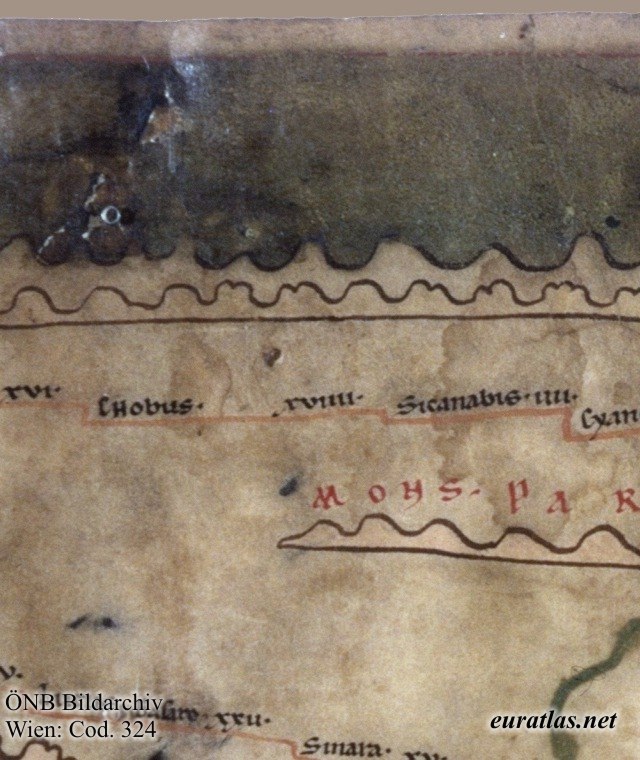 xvi·
Chobus·
xviiii·
Sicanabis·iiii·
Cyan
MONS· PAR
v·
xxii·
Sinara·
ÖNB Bildarchiv
Wien: Cod. 324
euratlas.net